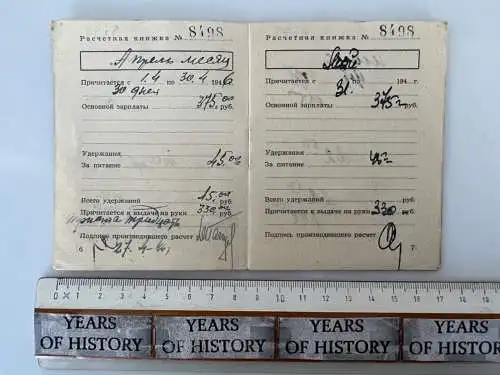 Расчетная книжка № 8498
Апрель месяц
Причитается с 1.4 по 30.4 194 г.
30 дней
Основной зарплаты 375.00 руб.
Удержания
За питание 45.00
Всего удержаний 45.00 руб.
Причитается к выдаче на руки 330 руб.
Подпись производившего расчет
6
27.4
Расчетная книжка № 8498
Май
Причитается с по 31. 194 г.
Основной зарплаты 375 руб.
Удержания
За питание
Всего удержаний руб.
Причитается к выдаче на руки 330 руб.
Подпись производившего расчет
7
0 1 2 3 4 5 6 7 8 9 10 11 12 13 14 15 16 17 18 19
YEARS OF HISTORY
YEARS OF HISTORY
YEARS OF HISTORY
YEARS OF HISTORY